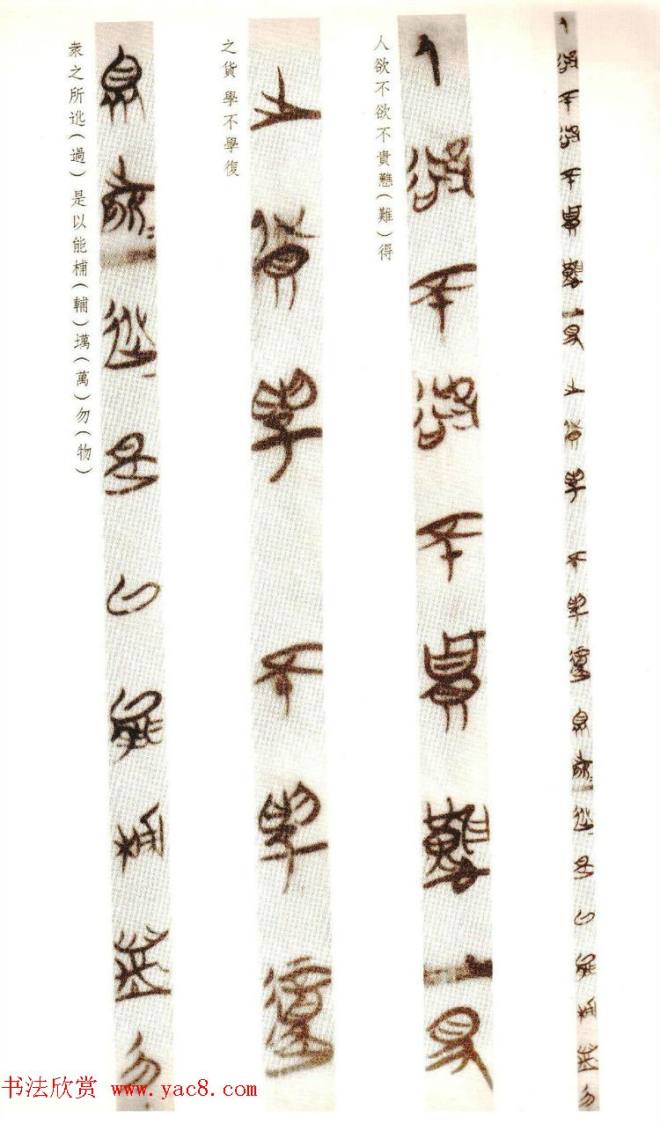 人欲不欲不貴戁(難)得
之貨 學不學復
衆之所𨒙(過)是以能㭪(輔)壔(萬)勿(物)
书法欣赏 www.yac8.com